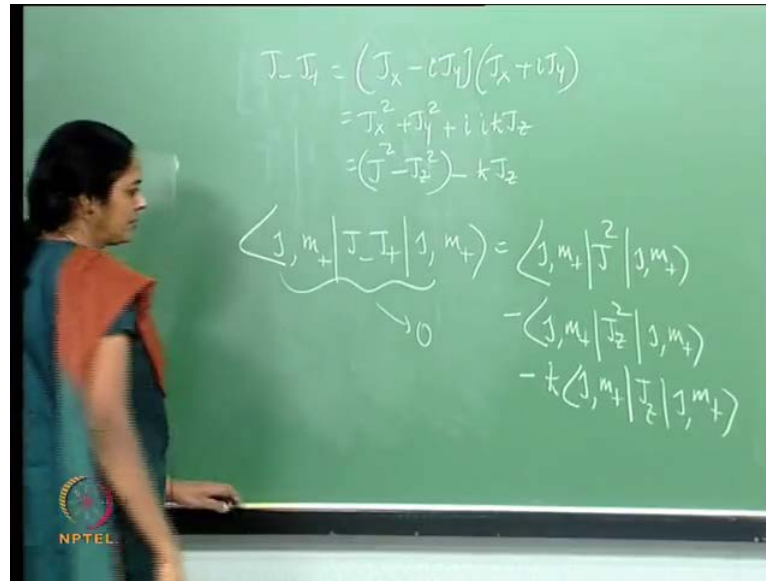 J₋J₊ = (Jₓ − iJ_y)(Jₓ + iJ_y)
= Jₓ² + J_y² + i iħJ_z
= (J² − J_z²) − ħJ_z
⟨J, m₊|J₋J₊|J, m₊⟩ = ⟨J, m₊|J²|J, m₊⟩
→ 0
− ⟨J, m₊|J_z²|J, m₊⟩
− ħ⟨J, m₊|J_z|J, m₊⟩
NPTEL